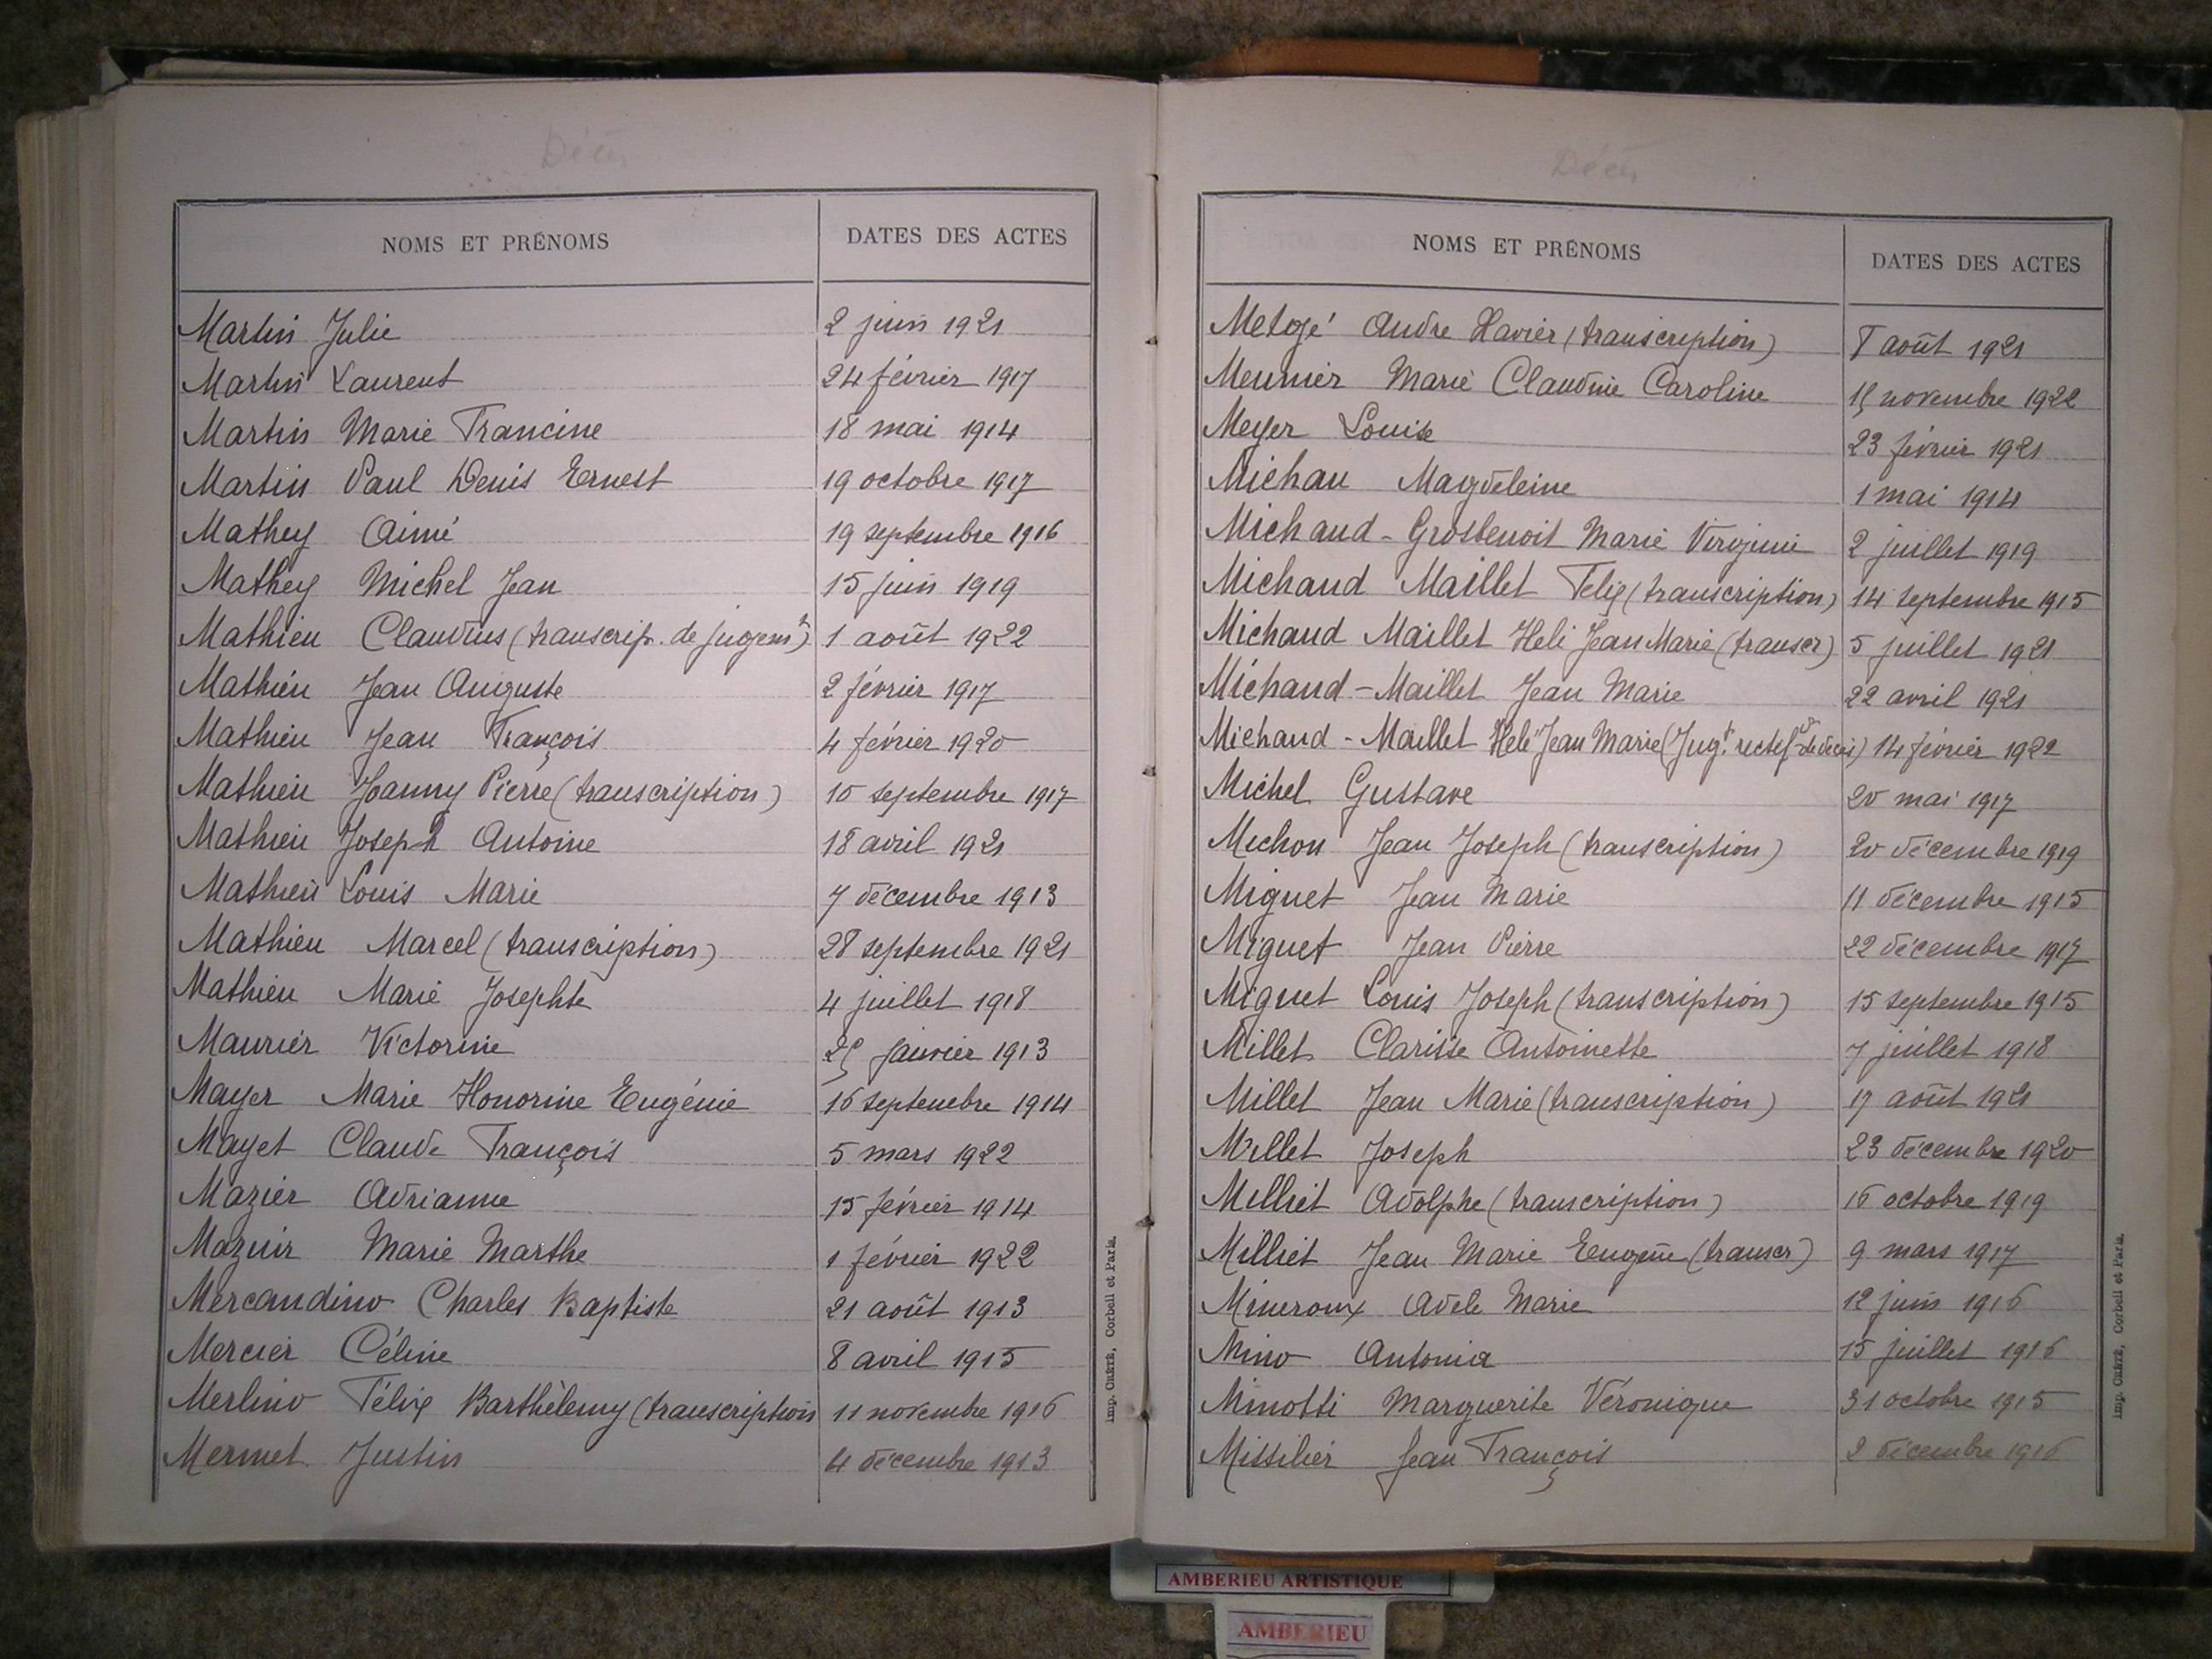 Décès
NOMS ET PRÉNOMS DATES DES ACTES
Martin Julie 2 juin 1921
Martin Laurent 24 février 1917
Martin Marie Francine 18 mai 1914
Martin Paul Denis Ernest 19 octobre 1917
Mathey Aimé 19 septembre 1916
Mathey Michel Jean 15 juin 1919
Mathieu Claudius (transcrip. de jugemt) 1 août 1922
Mathieu Jean Auguste 2 février 1917
Mathieu Jean François 4 février 1920
Mathieu Joanny Pierre (transcription) 10 septembre 1917
Mathieu Joseph Antoine 18 avril 1921
Mathieu Louis Marie 7 décembre 1913
Mathieu Marcel (transcription) 28 septembre 1921
Mathieu Marie Josephte 4 juillet 1918
Maurier Victorine janvier 1913
Mayer Marie Honorine Eugénie 16 septembre 1914
Mayet Claude François 5 mars 1922
Mazier Adrianne 15 février 1914
Mazuir Marie Marthe 1 février 1922
Mercandino Charles Baptiste 21 août 1913
Mercier Céline 8 avril 1915
Merlino Félix Barthèlemy (transcription 11 novembre 1916
Mermet Justin 4 décembre 1913
Imp. Crété, Corbeil et Paris.
Décès
NOMS ET PRÉNOMS DATES DES ACTES
Metgé Andre Xavier (transcription) 8 août 1921
Meunier Marie Claudine Caroline novembre 1922
Meyer Louise 23 février 1921
Michau Magdeleine 1 mai 1914
Michaud-Grosbenoit Marie Virginie 2 juillet 1919
Michaud Maillet Felix (transcription) 14 septembre 1915
Michaud Maillet Heli Jean Marie (transcr) 5 juillet 1921
Michaud-Maillet Jean Marie 22 avril 1921
Michaud-Maillet Jean Marie (Jugt. rectif de décès) 14 février 1922
Michel Gustave 20 mai 1917
Michon Jean Joseph (transcription) 20 décembre 1919
Miguet Jean Marie 11 décembre 1915
Miguet Jean Pierre 22 décembre 1917
Miguet Louis Joseph (transcription) 15 septembre 1915
Millet Clarisse Antoinette 7 juillet 1918
Millet Jean Marie (transcription) 17 août 1921
Millet Joseph 23 décembre 1920
Milliet Adolphe (transcription) 16 octobre 1919
Milliet Jean Marie Eugène (transcr) 9 mars 1917
Mineroux Adele Marie 12 juin 1916
Mino Antonia 15 juillet 1916
Minotti Marguerite Véronique 31 octobre 1915
Missilier Jean François 2 décembre 1916
Imp. Crété, Corbeil et Paris.
AMBERIEU ARTISTIQUE
AMBERIEU